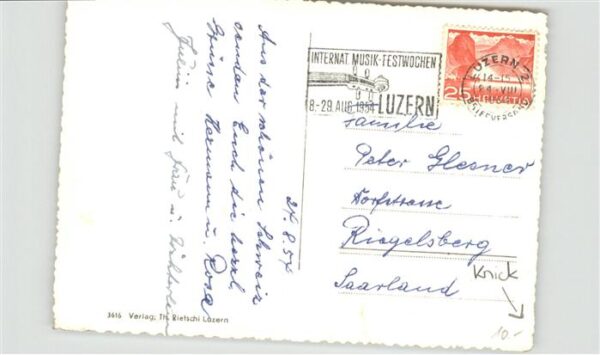 24.8.54
Aus der schönen Schweiz
senden Euch die herzl.
Grüsse Hermann u. Rosa
mit Frau u.
3616 Verlag: Th. Rietschi Luzern
INTERNAT. MUSIK-FESTWOCHEN
8.-29. AUG. 1954 LUZERN
LUZERN 2
VIII
BRIEFVERSAND
25 HELVETIA
Familie
Peter Glesner
Dorfstrasse
Riegelsberg
Saarland
Knick
10.-